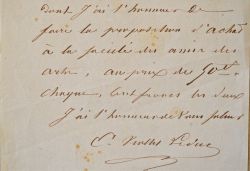 dont j'ai l'honneur de
faire la proposition d'achat
à la société des amis des
arts, au prix de 50
chaque, Cent francs les deux
J'ai l'honneur de vous saluer
E. Viollet Leduc